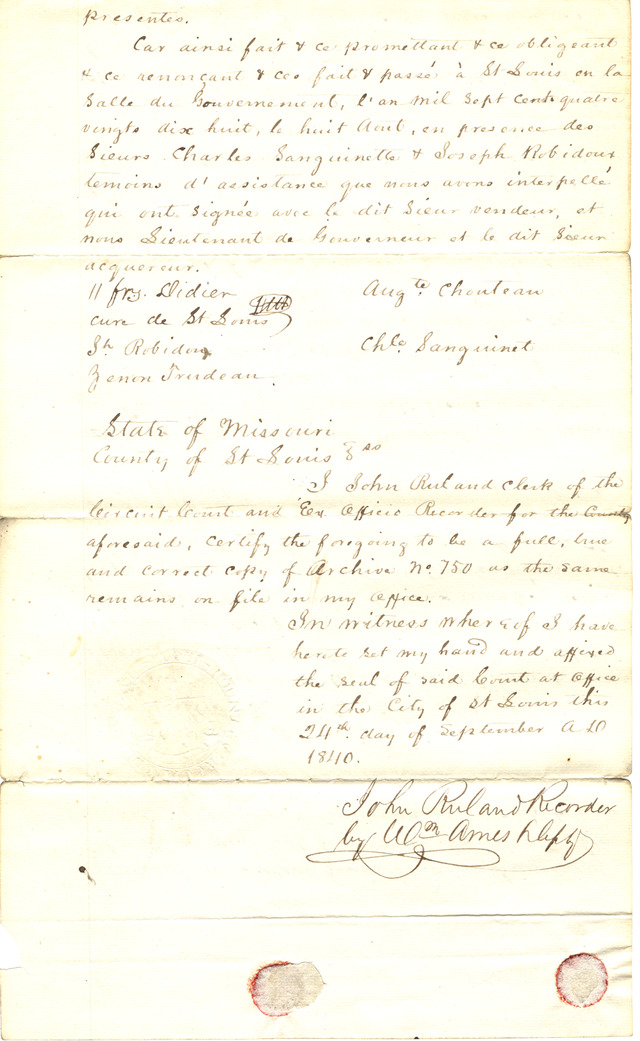 presentes.
Car ainsi fait & ce promettant & ce obligeant
& ce renonçant & ces fait & passé à St Louis en la
Salle du Gouvernement, l'an mil Sept Cent quatre
vingts dix huit, le huit Aout, en presence des
Sieurs Charles Sanguinette & Joseph Robidoux
temoins d'assistance que nous avons interpellé
qui ont signée avec le dit Sieur vendeur, et
nous Lieutenant de Gouverneur et le dit Sieur
acquereur.
11 frs. Didier
Augte Chouteau
cure de St Louis
Jh Robidou
Chle Sanguinet
Zenon Trudeau.
State of Missouri
County of St Louis
I John Ruland Clerk of the
Circuit Court and Ex Officio Recorder for the County
aforesaid, Certify the foregoing to be a full, true
and correct copy of Archive No. 750 as the same
remains on file in my office.
In witness whereof I have
hereto set my hand and affixed
the seal of said Court at office
in the City of St Louis this
24th day of September A D
1840.
John Ruland Recorder
by Wm Ames Depy